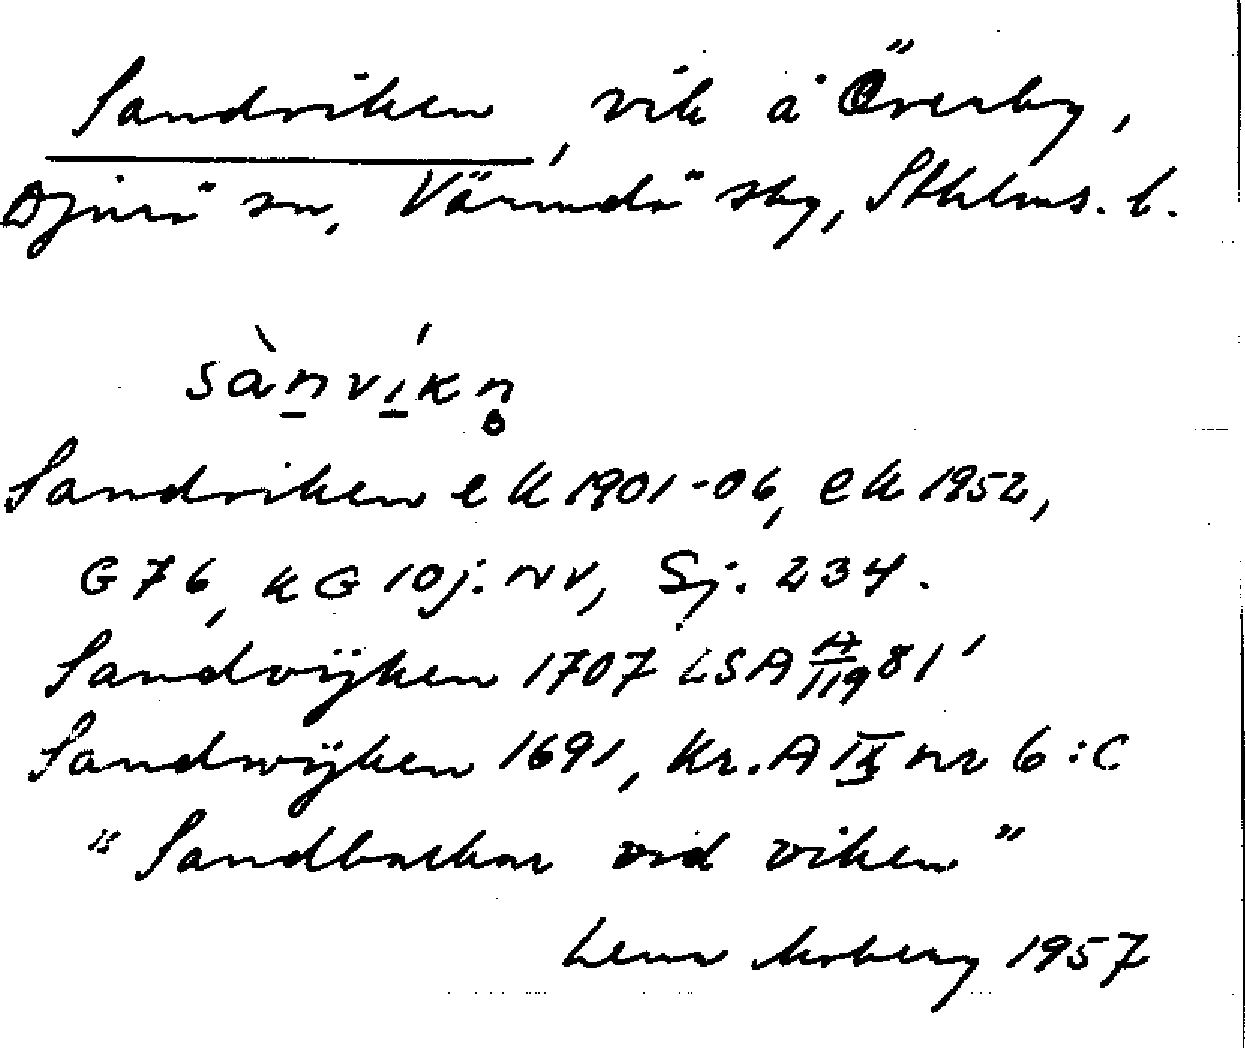 Sandviken, vik å Överby,
Djurö sn, Värmdö skg, Sthlms. l.
sànvíkn̥
Sandviken ek 1901-06, ek 1952,
G 76, KG 10j. NV, Sj. 234.
Sandvijken 1707 LSA A/119 81'
Sandwijken 1691, Kr. A IX nr 6:C
"Sandbackar vid viken"
Lena Moberg 1957